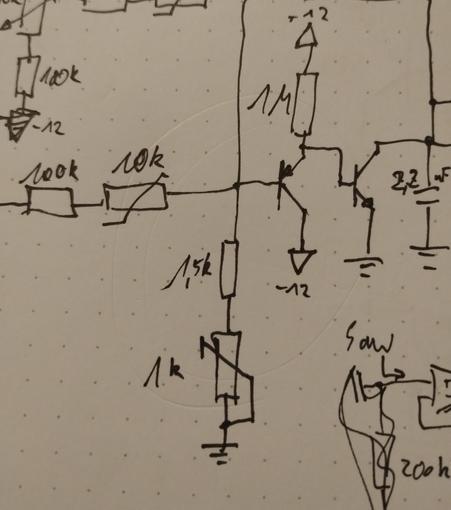 -12
1M
100k
-12
100k
10k
2,2 nF
1,5k
-12
1k
Saw
200k